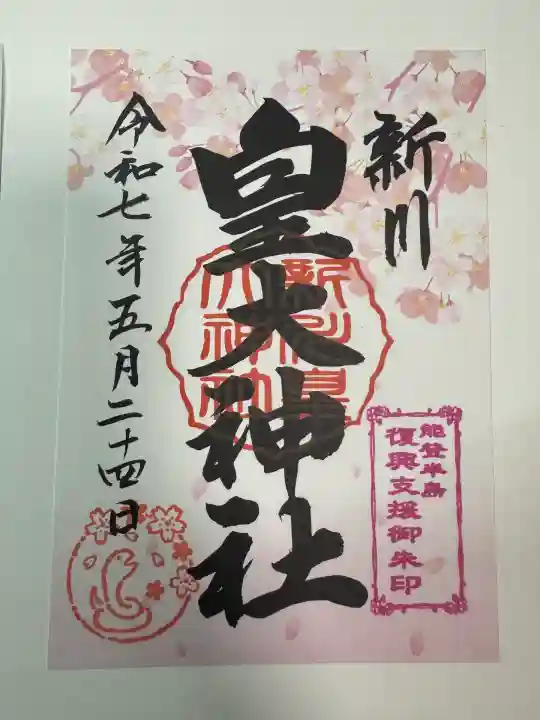 新川
皇大神社
新川皇
大神社
令和七年五月二十四日
能登半島
復興支援御朱印